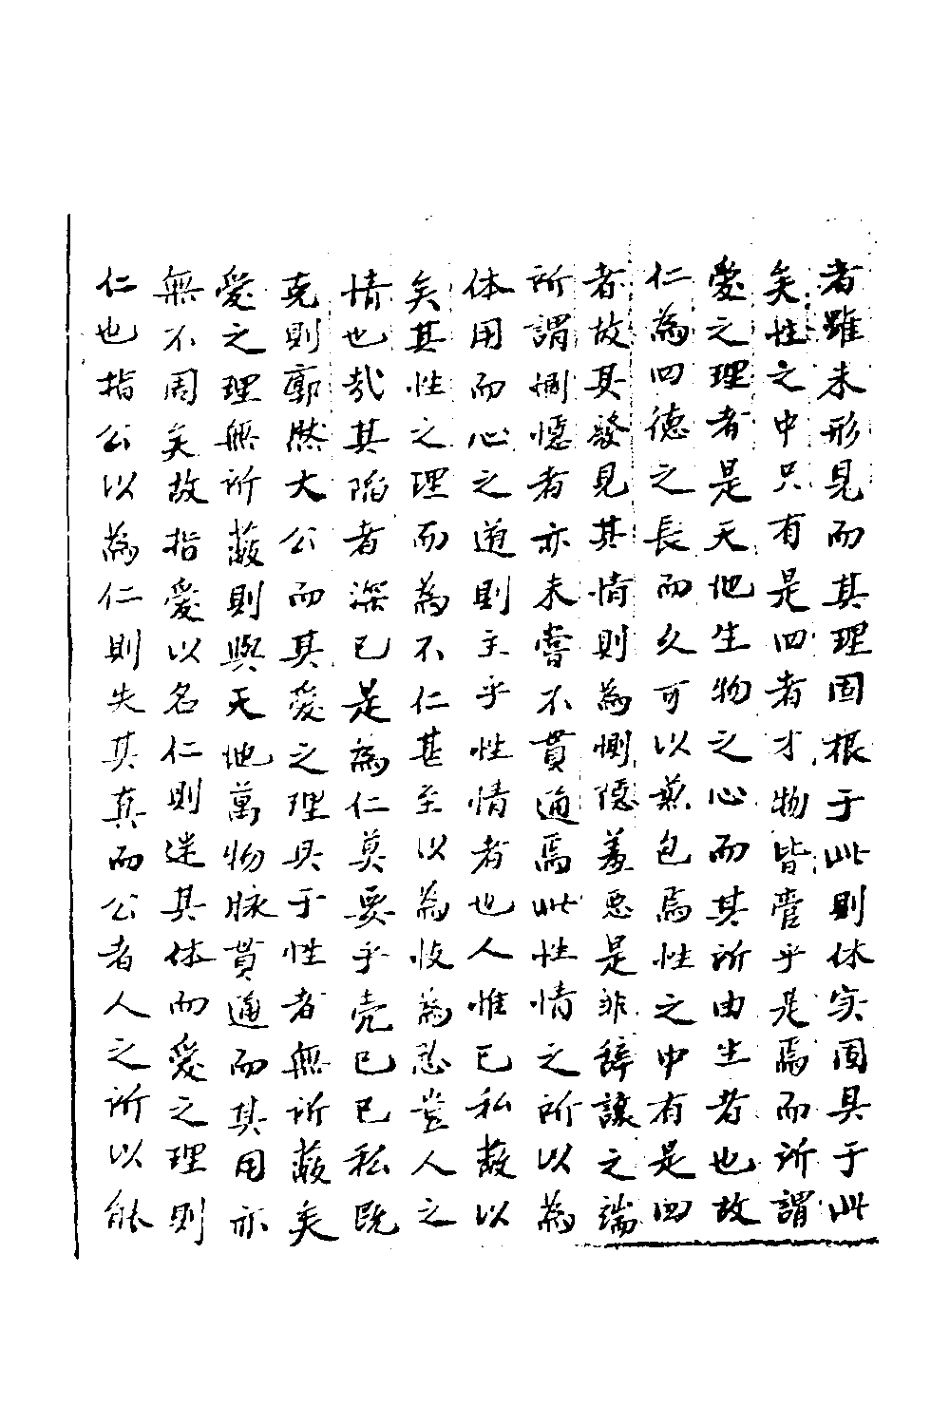 者雖未形見而其理固根于此則体实固具于此
矣性之中只有是四者才物皆管乎是焉而所謂
愛之理者是天地生物之心而其所由生者也故
仁為四德之長而久可以兼包焉性之中有是四
者故其發見其情則為惻隱羞惡是非辞讓之端
所謂惻隱者亦未嘗不貫通焉此性情之所以為
体用而心之道則主乎性情者也人惟已私蔽以
矣其性之理而為不仁甚至以為忮為忍豈人之
情也哉其陷者深已是為仁莫要乎克已已私既
克則廓然大公而其愛之理具于性者無所蔽矣
愛之理無所蔽則與天地萬物脉貫通而其用亦
無不周矣故指愛以名仁則迷其体而愛之理則
仁也指公以為仁則失其真而公者人之所以能